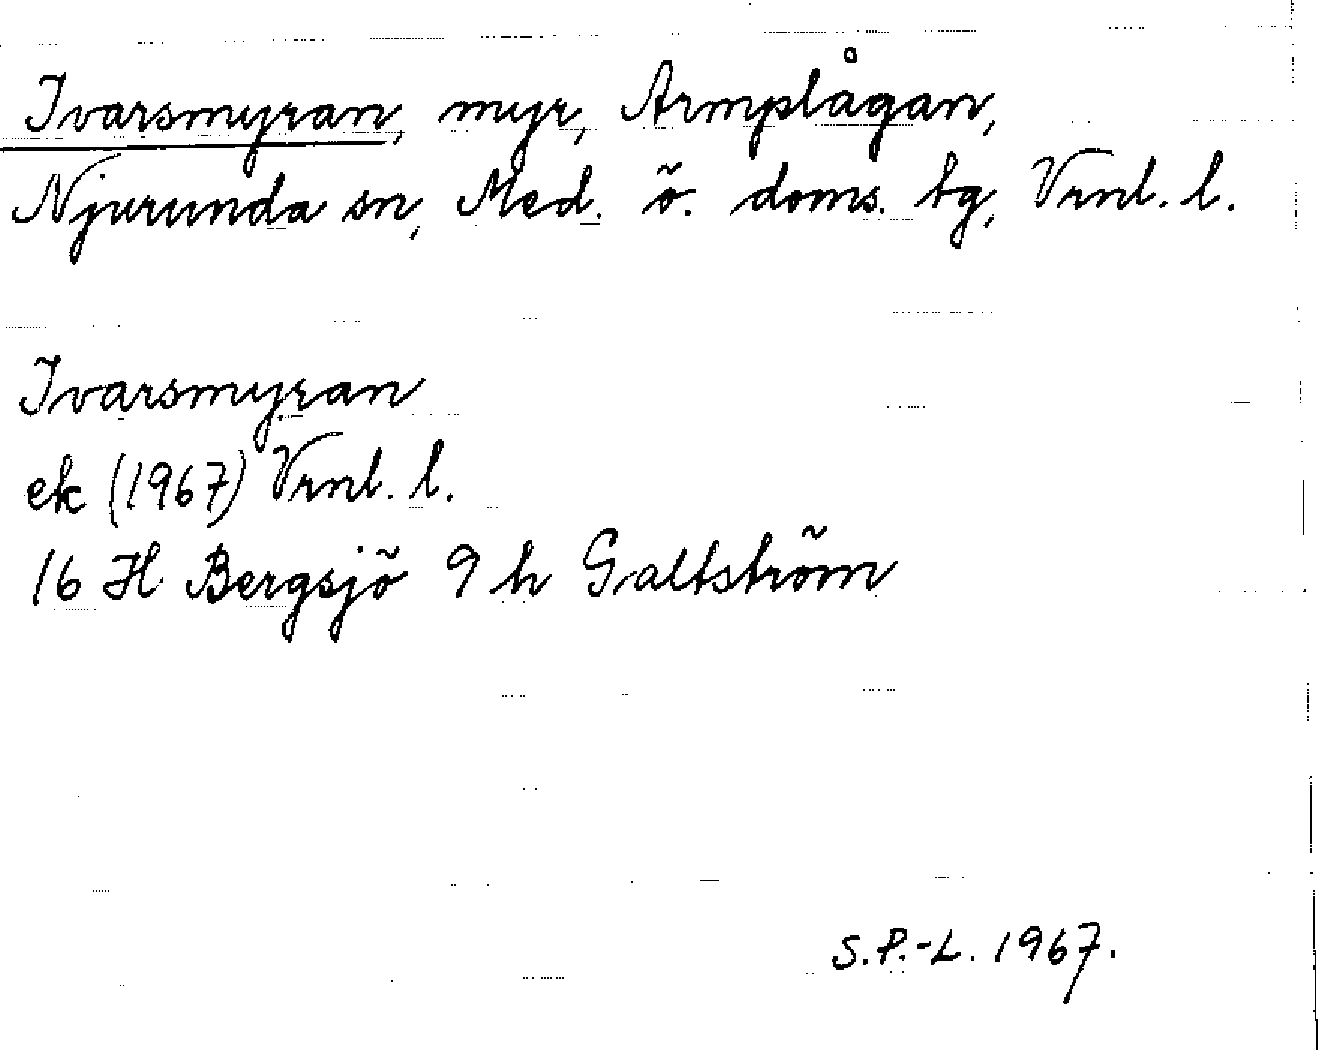 Ivarsmyran, myr, Armplågan,
Njurunda sn, Med. ö. doms. tg, Vrnl. l.
Ivarsmyran
ek (1967) Vrnl. l.
16 H Bergsjö 9 h Galtström
S.P.-L. 1967.